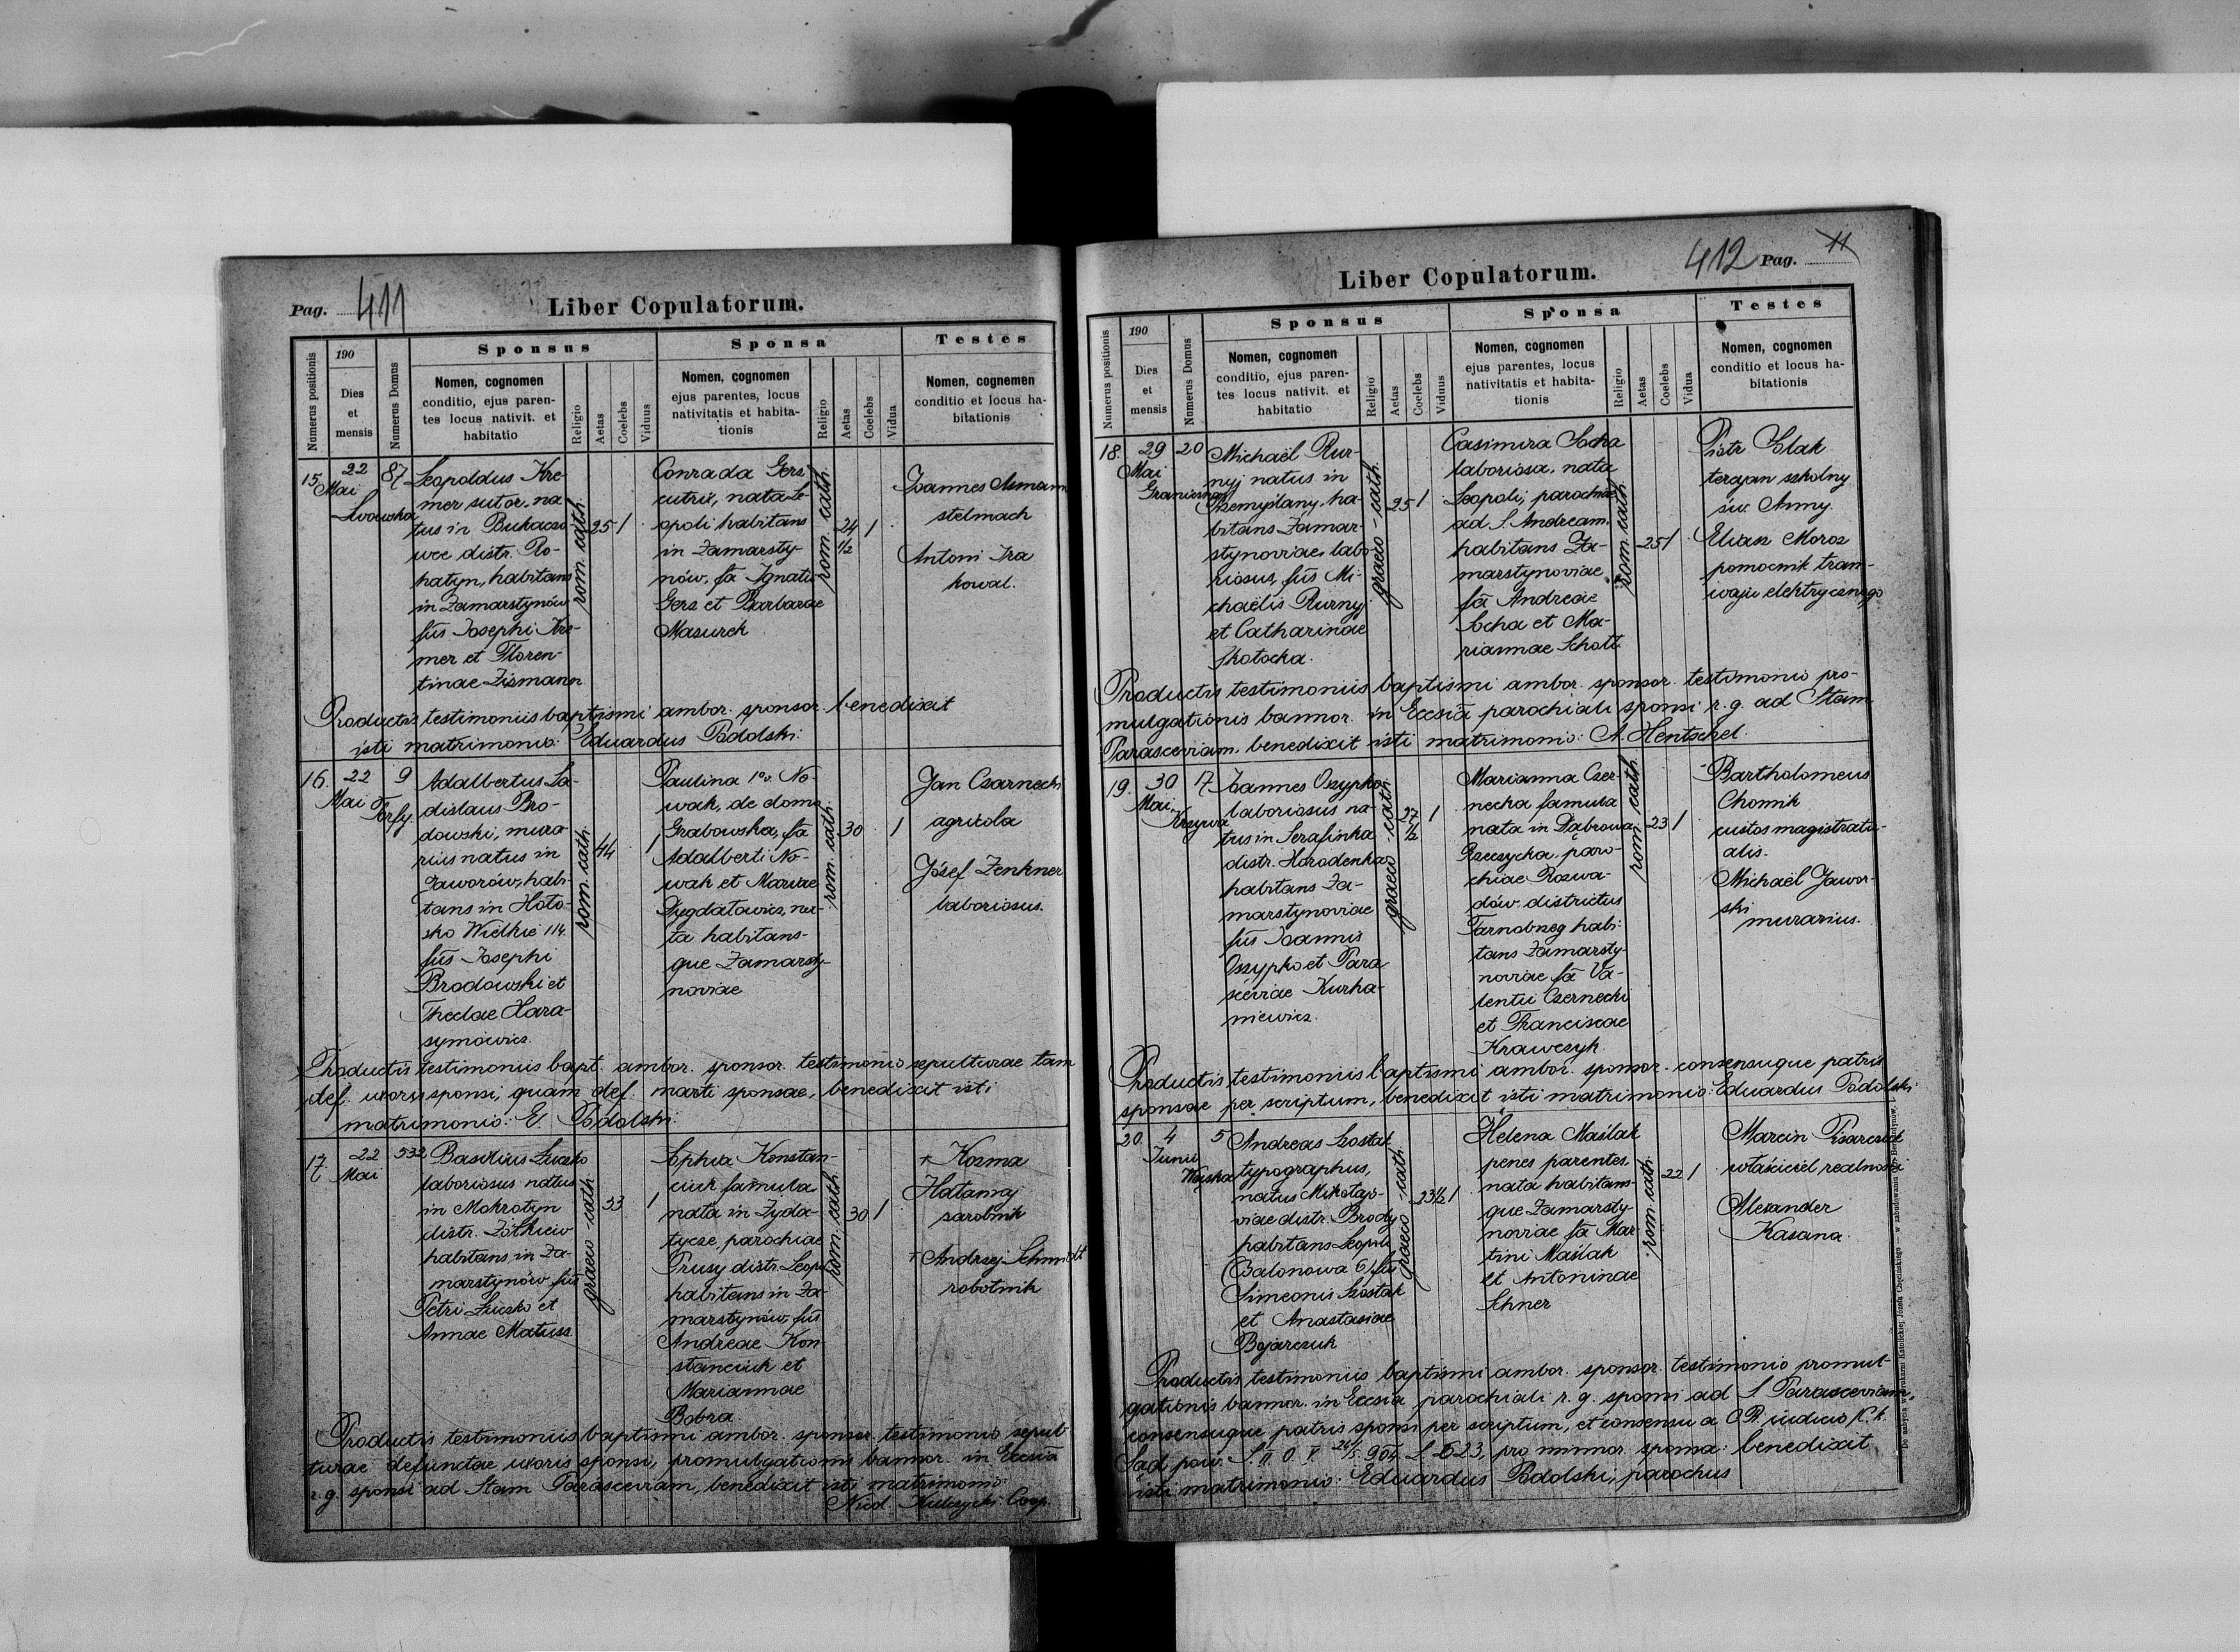 Pag. 411
Liber Copulatorum.
Numerus positionis
190
Dies
et
mensis
Numerus Domus
Sponsus
Nomen, cognomen
conditio, ejus paren-
tes locus nativit. et
habitatio
Religio
Aetas
Coelebs
Viduus
Sponsa
Nomen, cognomen
ejus parentes, locus
nativitatis et habita-
tionis
Religio
Aetas
Coelebs
Vidua
Testes
Nomen, cognemen
conditio et locus ha-
bitationis
15.
22
Mai
Lwowska
87
Leopoldus Kre-
mer sutor, na
tus in Bukaczo
wce distr. Ro-
hatyn, habitans
in Zamarstynów
fiis Josephi Kre-
mer et Floren-
tinae Zismann
rom. cath.
25
1
Conrada Gers
cutrix, nata Le-
opoli habitans
in Zamarsty-
nów, fa Ignatii
Gers et Barbarae
Masurek
rom. cath.
24
1/2
1
Joannes Asmann
stelmach
Antoni Tra
kowal.
Productis testimoniis baptismi ambor. sponsor. benedixit
isti matrimonio: Eduardus Podolski.
16.
22
Mai
Torfy.
9
Adalbertus La-
dislaus Bro-
dowski, mura
rius natus in
Jaworów, habi-
tans in Hoło-
sko Wielkie 114.
fiis Josephi
Brodowski et
Theclae Hara-
symowicz.
rom. cath.
44
1
Paulina 1o v. No-
wak, de domo
Grabowska, fa
Adalberti No-
wak et Mariae
Nygdałowicz, na-
ta habitans-
que Zamarsty-
noviae
rom. cath.
30
1
Jan Czarnecki
agricola
Józef Zenkner
laboriosus.
Productis testimoniis bapt. ambor. sponsor. testimonio sepulturae tam
def. uxoris sponsi, quam def. mariti sponsae, benedixit isti
matrimonio: E. Podolski.
17.
22
Mai
532
Basilius Łuczko
laboriosus natus
in Mokrotyn
distr. Żółkiew
habitans in Za-
marstynów fiis
Petri Łuczko et
Annae Matusz.
graeco-cath.
33
1
Sophia Konstan-
ciuk famula
nata in Żyda-
tycze, parochiae
Prusy distr. Leopol
habitans in Za-
marstynów, fiis
Andreae Kon-
stanciuk et
Mariannae
Bobra.
rom. cath.
30
1
+ Kozma
Hałamaj
zarobnik
+ Andrzej Schmidt
robotnik
Productis testimoniis baptismi ambor. sponsor. testimonio sepul-
turae defunctae uxoris sponsi, promulgationis bannor. in Eccsia
r. g. sponsi ad Stam Parasceviam, benedixit isti matrimonio:
Nicol. Kulczycki Coop.
412 Pag. 11
Liber Copulatorum.
Numerus positionis
190
Dies
et
mensis
Numerus Domus
Sponsus
Nomen, cognomen
conditio, ejus paren-
tes locus nativit. et
habitatio
Religio
Aetas
Coelebs
Viduus
Sponsa
Nomen, cognomen
ejus parentes, locus
nativitatis et habita-
tionis
Religio
Aetas
Coelebs
Vidua
Testes
Nomen, cognomen
conditio et locus ha-
bitationis
18.
29
Mai
Graniczna
20
Michaël Rur-
nyj natus in
Przemyślany, ha-
bitans Zamar-
stynoviae, labo-
riosus, fiis Mi-
chaëlis Rurnyj
et Catharinae
Skotocka.
graeco-cath.
25
1
Casimira Socha
laboriosa, nata
Leopoli, parochiae
ad S. Andream.
habitans Za-
marstynoviae
fa Andreae
Socha et Ma-
riannae Scholl.
rom. cath.
25
1
Piotr Polak
tercyan szkolny
św. Anny.
Eliasz Moroz
pomocnik tram-
waju elektrycznego
Productis testimoniis baptismi ambor. sponsor. testimonio pro-
mulgationis bannor. in Eccsia parochiali sponsi r. g. ad Stam
Parasceviam. benedixit isti matrimonio: A. Hentschel.
19.
30
Mai
Krzywa
17
Joannes Oszypko
laboriosus na-
tus in Serafinka
distr. Horodenka
habitans Za-
marstynoviae
fiis Joannis
Oszypko et Para
sceviae Kurha-
niewicz.
graeco-cath.
27
1/2
1
Marianna Czer-
necka famula
nata in Dąbrowa
Rzeczycka, paro-
chiae Rozwa-
dów, districtus
Tarnobrzeg habi-
tans Zamarsty-
noviae fa Va-
lentii Czernecki
et Franciscae
Krawczyk.
rom. cath.
23
1
Bartholomeus
Chomik
custos magistratu-
alis.
Michaël Jawor-
ski
murarius.
Productis testimoniis baptismi ambor. sponsor. consensuque patris
sponsae per scriptum, benedixit isti matrimonio: Eduardus Podolski.
20.
4
Junii
Wąska
5
Andreas Szostak
typographus,
natus Mikołajo-
viae distr. Brody
habitans Leopoli
Balonowa 6, fiis
Simeonis Szostak
et Anastasiae
Bojarczuk
graeco-cath.
23 1/2
1
Helena Maślak
penes parentes
nata habitans-
que Zamarsty-
noviae fa Mar
tini Maślak
et Antoninae
Schner
rom. cath.
22
1
Marcin Pisarczuk
właściciel realności
Alexander
Kasana.
Productis testimoniis baptismi ambor. sponsor. testimonio promul-
gationis bannor. in Eccsia parochiali r. g. sponsi ad S. Parasceviam,
consensuque patris sponsi per scriptum, et consensu a iudicio
Sąd pow. S. II O. V. 24/5 904 L 523, pro minor. sponsa: benedixit
isti matrimonio: Eduardus Podolski, parochus